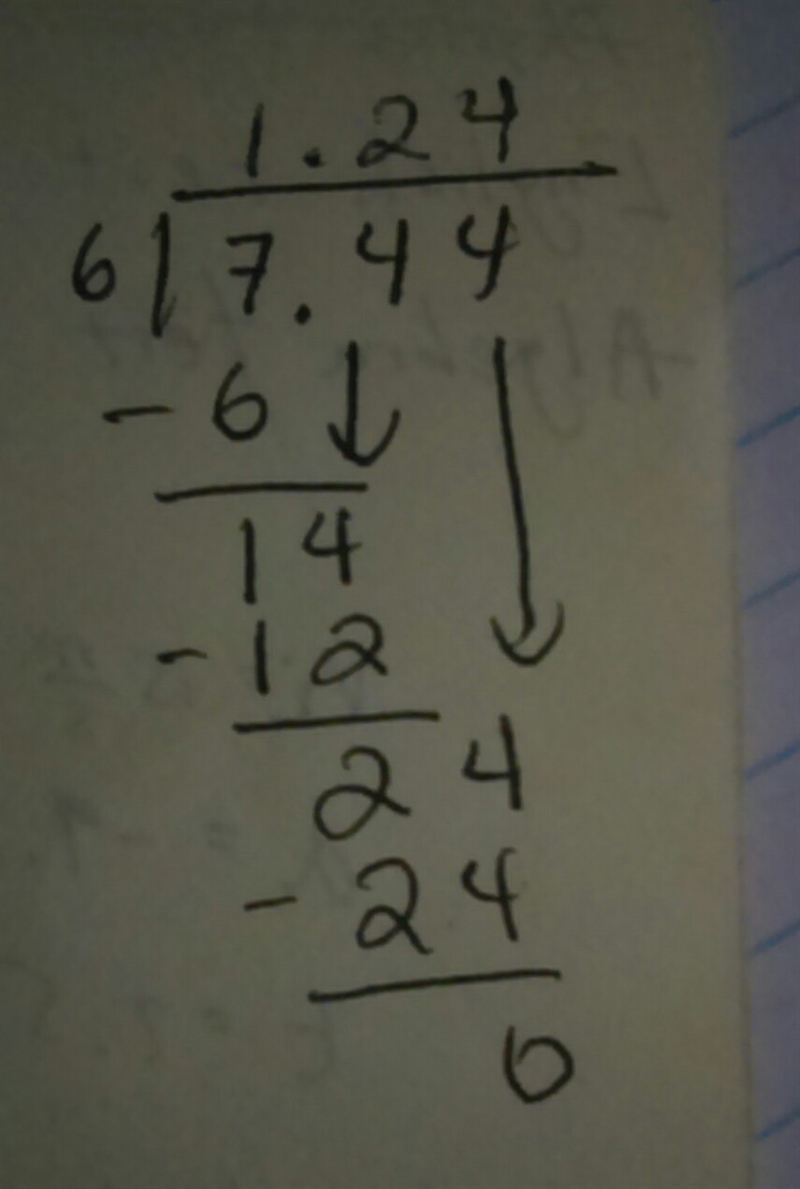 1.24
6 7.44
- 6
14
- 12
24
- 24
0